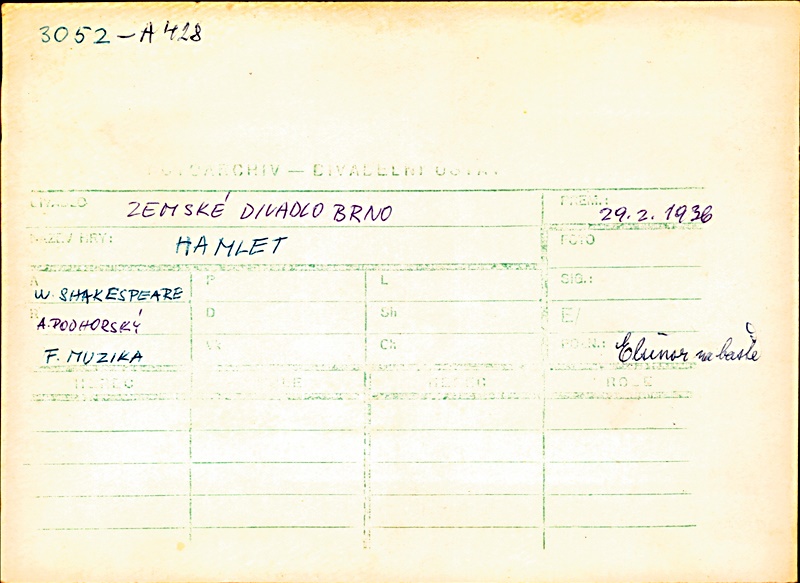 3052-A428
FOTOARCHIV — DIVADELNÍ ÚSTAV
DIVADLO ZEMSKÉ DIVADLO BRNO PREM.: 29.2.1936
NÁZEV HRY: HAMLET FOTO
A W. SHAKESPEARE P L SIG.:
R A. PODHORSKÝ D Sh E/
F. MUZIKA Vk Ch POZN.: Elsinor na baště
HEREC ROLE HEREC ROLE